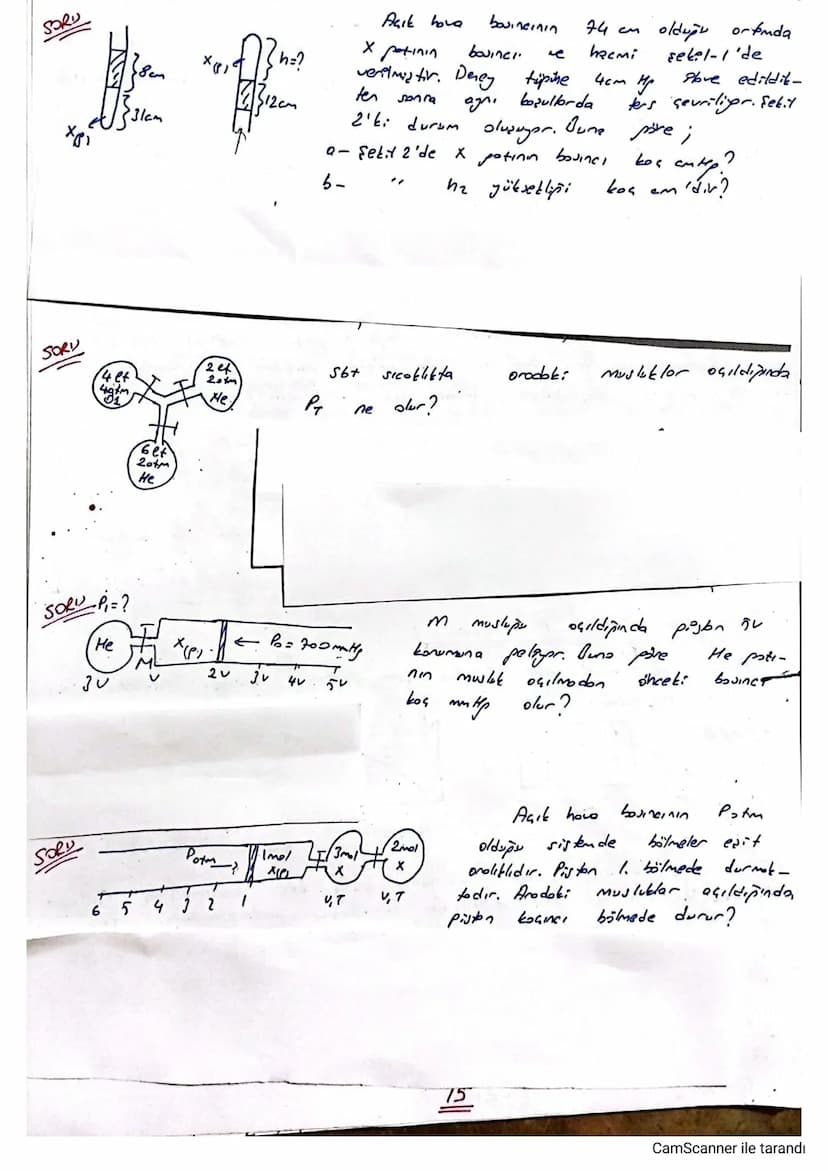 SORU
Açık hava basıncının 74 cm olduğu ortamda
X gazının basıncı ve hacmi şekil-1'de
verilmiştir. Deney tüpüne 4cm Hg ilave edildik-
ten sonra aynı koşullarda ters çevriliyor. Şekil
2'ki durum oluşuyor. Buna göre;
a- Şekil 2'de X gazının basıncı kaç cmHg?
b- " h2 yüksekliği kaç cm'dir?
8cm
31cm
X(g)
X(g)
h=?
12cm
SORU
Sbt sıcaklıkta aradaki musluklar açıldığında
PT ne olur?
4 lt
4atm
2 lt
2atm
He
6 lt
2atm
He
SORU P1=?
He
M
X(g)
P0=700mmHg
3V V 2V 3V 4V 5V
M musluğu açıldığında piston 5V
konumuna geliyor. Buna göre He gazı-
nın musluk açılmadan önceki basıncı
kaç mmHg olur?
SORU
Açık hava basıncının Patm
olduğu sistemde bölmeler eşit
aralıklıdır. Piston 1. bölmede durmak-
tadır. Aradaki musluklar açıldığında
piston kaçıncı bölmede durur?
Patm
1mol
X(g)
3mol
X
2mol
X
6 5 4 3 2 1
V,T V,T
15
CamScanner ile tarandı